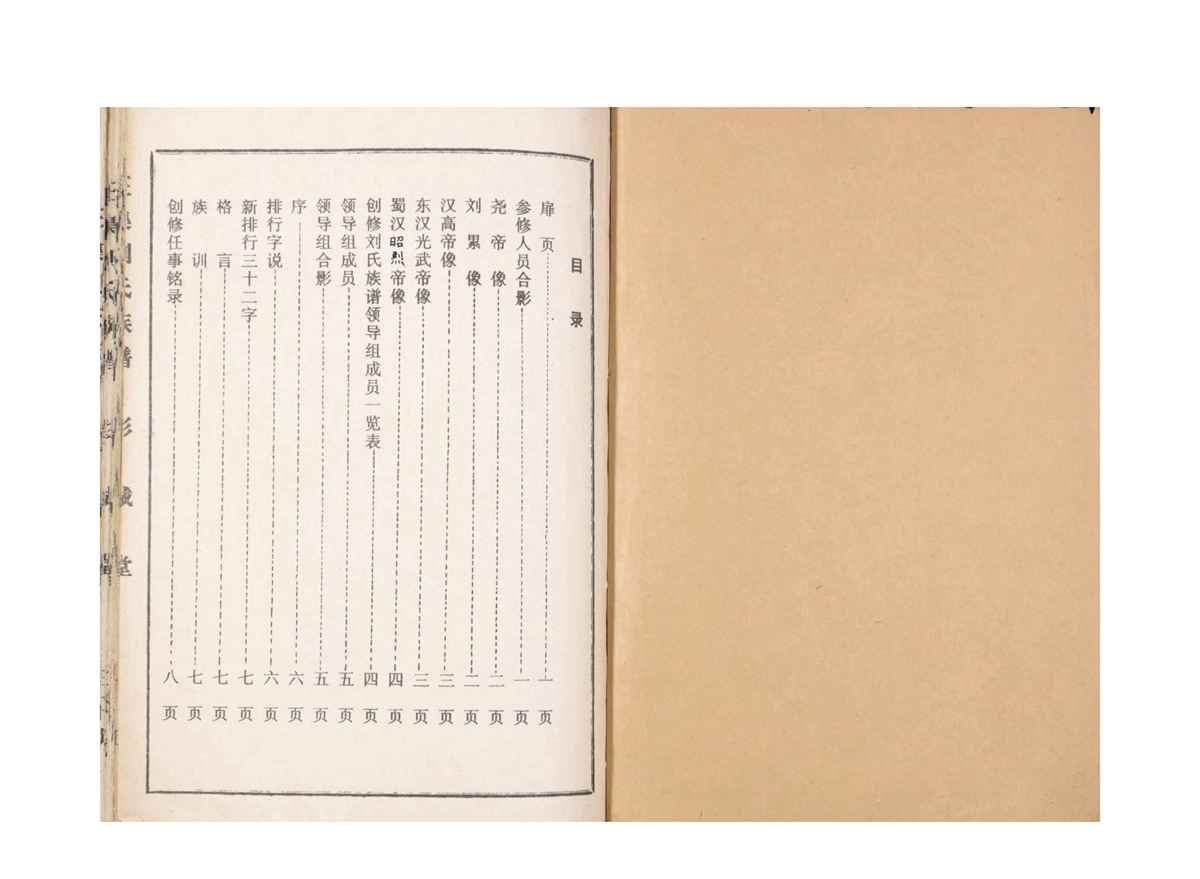 目录
扉页 一页
参修人员合影 一页
尧帝像 二页
刘累像 二页
汉高帝像 三页
东汉光武帝像 三页
蜀汉昭烈帝像 四页
创修刘氏族谱领导组成员一览表 四页
领导组成员 五页
领导组合影 五页
序 六页
排行字说 六页
新排行三十二字 七页
格言 七页
族训 七页
创修任事铭录 八页
氏族谱
堂